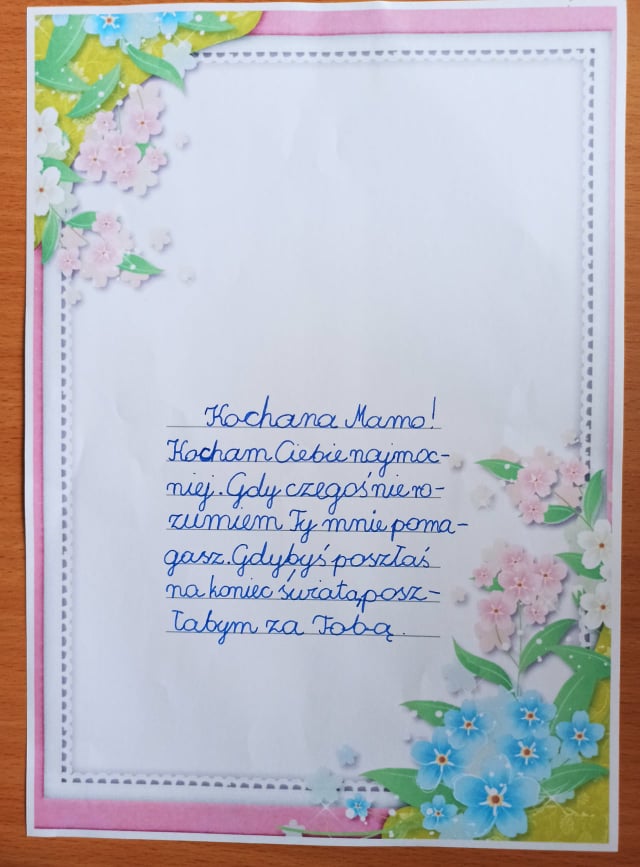 Kochana Mamo!
Kocham Ciebie najmoc-
niej. Gdy czegoś nie ro-
zumiem Ty mnie poma-
gasz. Gdybyś poszłaś
na koniec świata, posz-
łabym za Tobą.